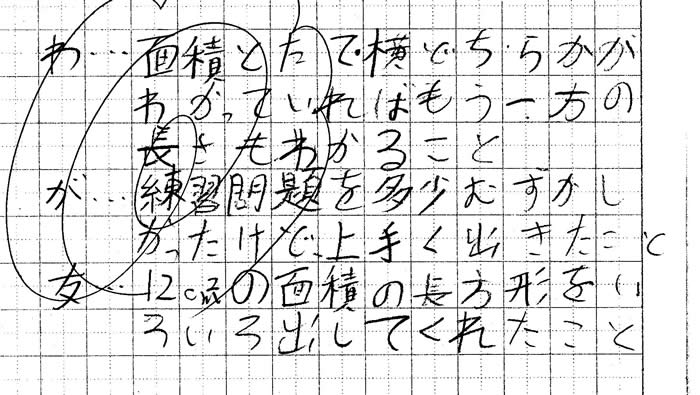 わ…面積とたて横どちらかが
わかっていればもう一方の
長さもわかること
が…練習問題を多少むずかし
かったけど、上手く出きたこと
友…12cm²の面積の長方形をい
ろいろ出してくれたこと